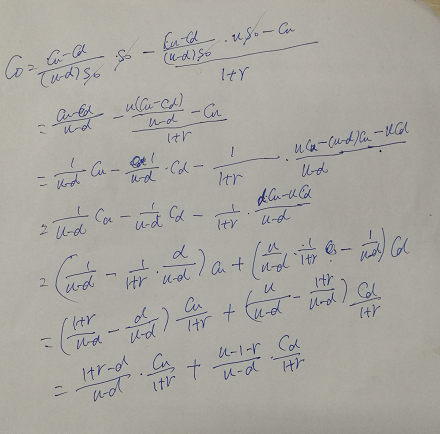 C₀ = (Cu-Cd)/((u-d)S₀) · S₀ - ((Cu-Cd)/((u-d)S₀) · uS₀ - Cu)/(1+r)
= (Cu-Cd)/(u-d) - (u(Cu-Cd)/(u-d) - Cu)/(1+r)
= 1/(u-d) Cu - 1/(u-d) · Cd - 1/(1+r) · (uCu-(u-d)Cu-uCd)/(u-d)
= 1/(u-d) Cu - 1/(u-d) Cd - 1/(1+r) · (dCu-uCd)/(u-d)
= (1/(u-d) - 1/(1+r) · d/(u-d)) Cu + (u/(u-d) · 1/(1+r) - 1/(u-d)) Cd
= ((1+r)/(u-d) - d/(u-d)) Cu/(1+r) + (u/(u-d) - (1+r)/(u-d)) Cd/(1+r)
= (1+r-d)/(u-d) · Cu/(1+r) + (u-1-r)/(u-d) · Cd/(1+r)